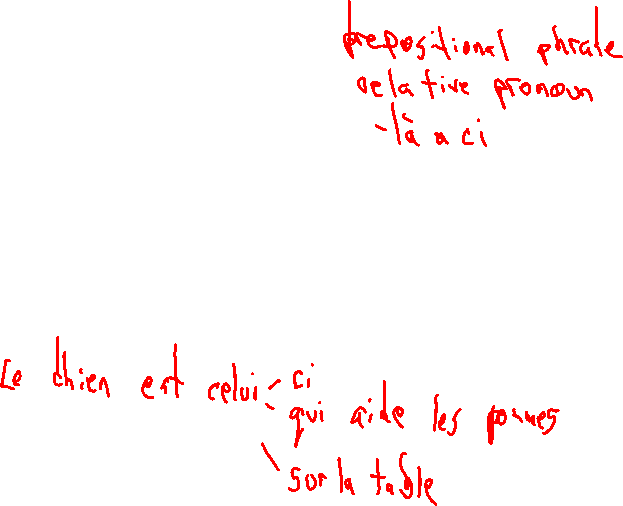 prepositional phrase
relative pronoun
-là ou ci
Le chien est celui - ci
qui aide les pommes
sur la table